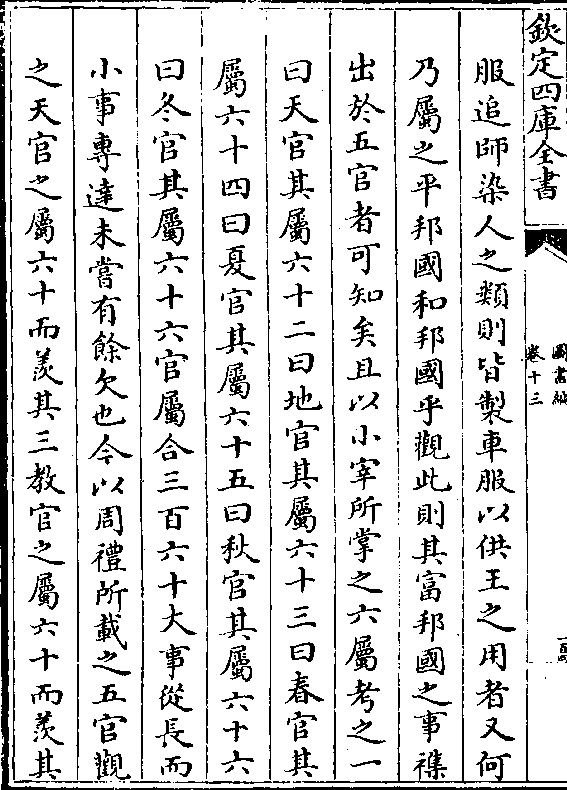 欽定四庫全書
圖書編
卷十三
服追師染人之類則皆製車服以供王之用者又何
乃屬之平邦國和邦國乎觀此則其富邦國之事襍
出於五官者可知矣且以小宰所掌之六屬考之一
曰天官其屬六十二曰地官其屬六十三曰春官其
屬六十四曰夏官其屬六十五曰秋官其屬六十六
曰冬官其屬六十六官屬合三百六十大事從長而
小事專達未嘗有餘欠也今以周禮所載之五官觀
之天官之屬六十而羨其三教官之屬六十而羨其